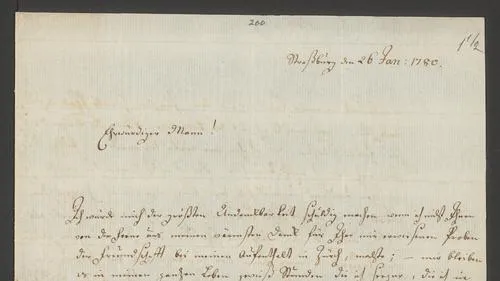 200
1 1/2
Straßburg den 26 Jan: 1780.
Ehrwürdiger Mann!
Ich würde mich der größten Undankbarkeit schuldig machen wenn ich nicht Ihnen
von der Ferne aus, meinen wärmsten Dank für Ihre mir erwiesenen Proben
der Freundschaft bei meinem Aufenthalt in Zürich, malte; – mir bleiben
es in meinem ganzen Leben gewiß Stunden, die ich segne, die ich in